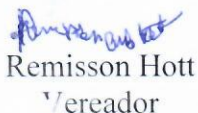 Remisson Hott
Vereador